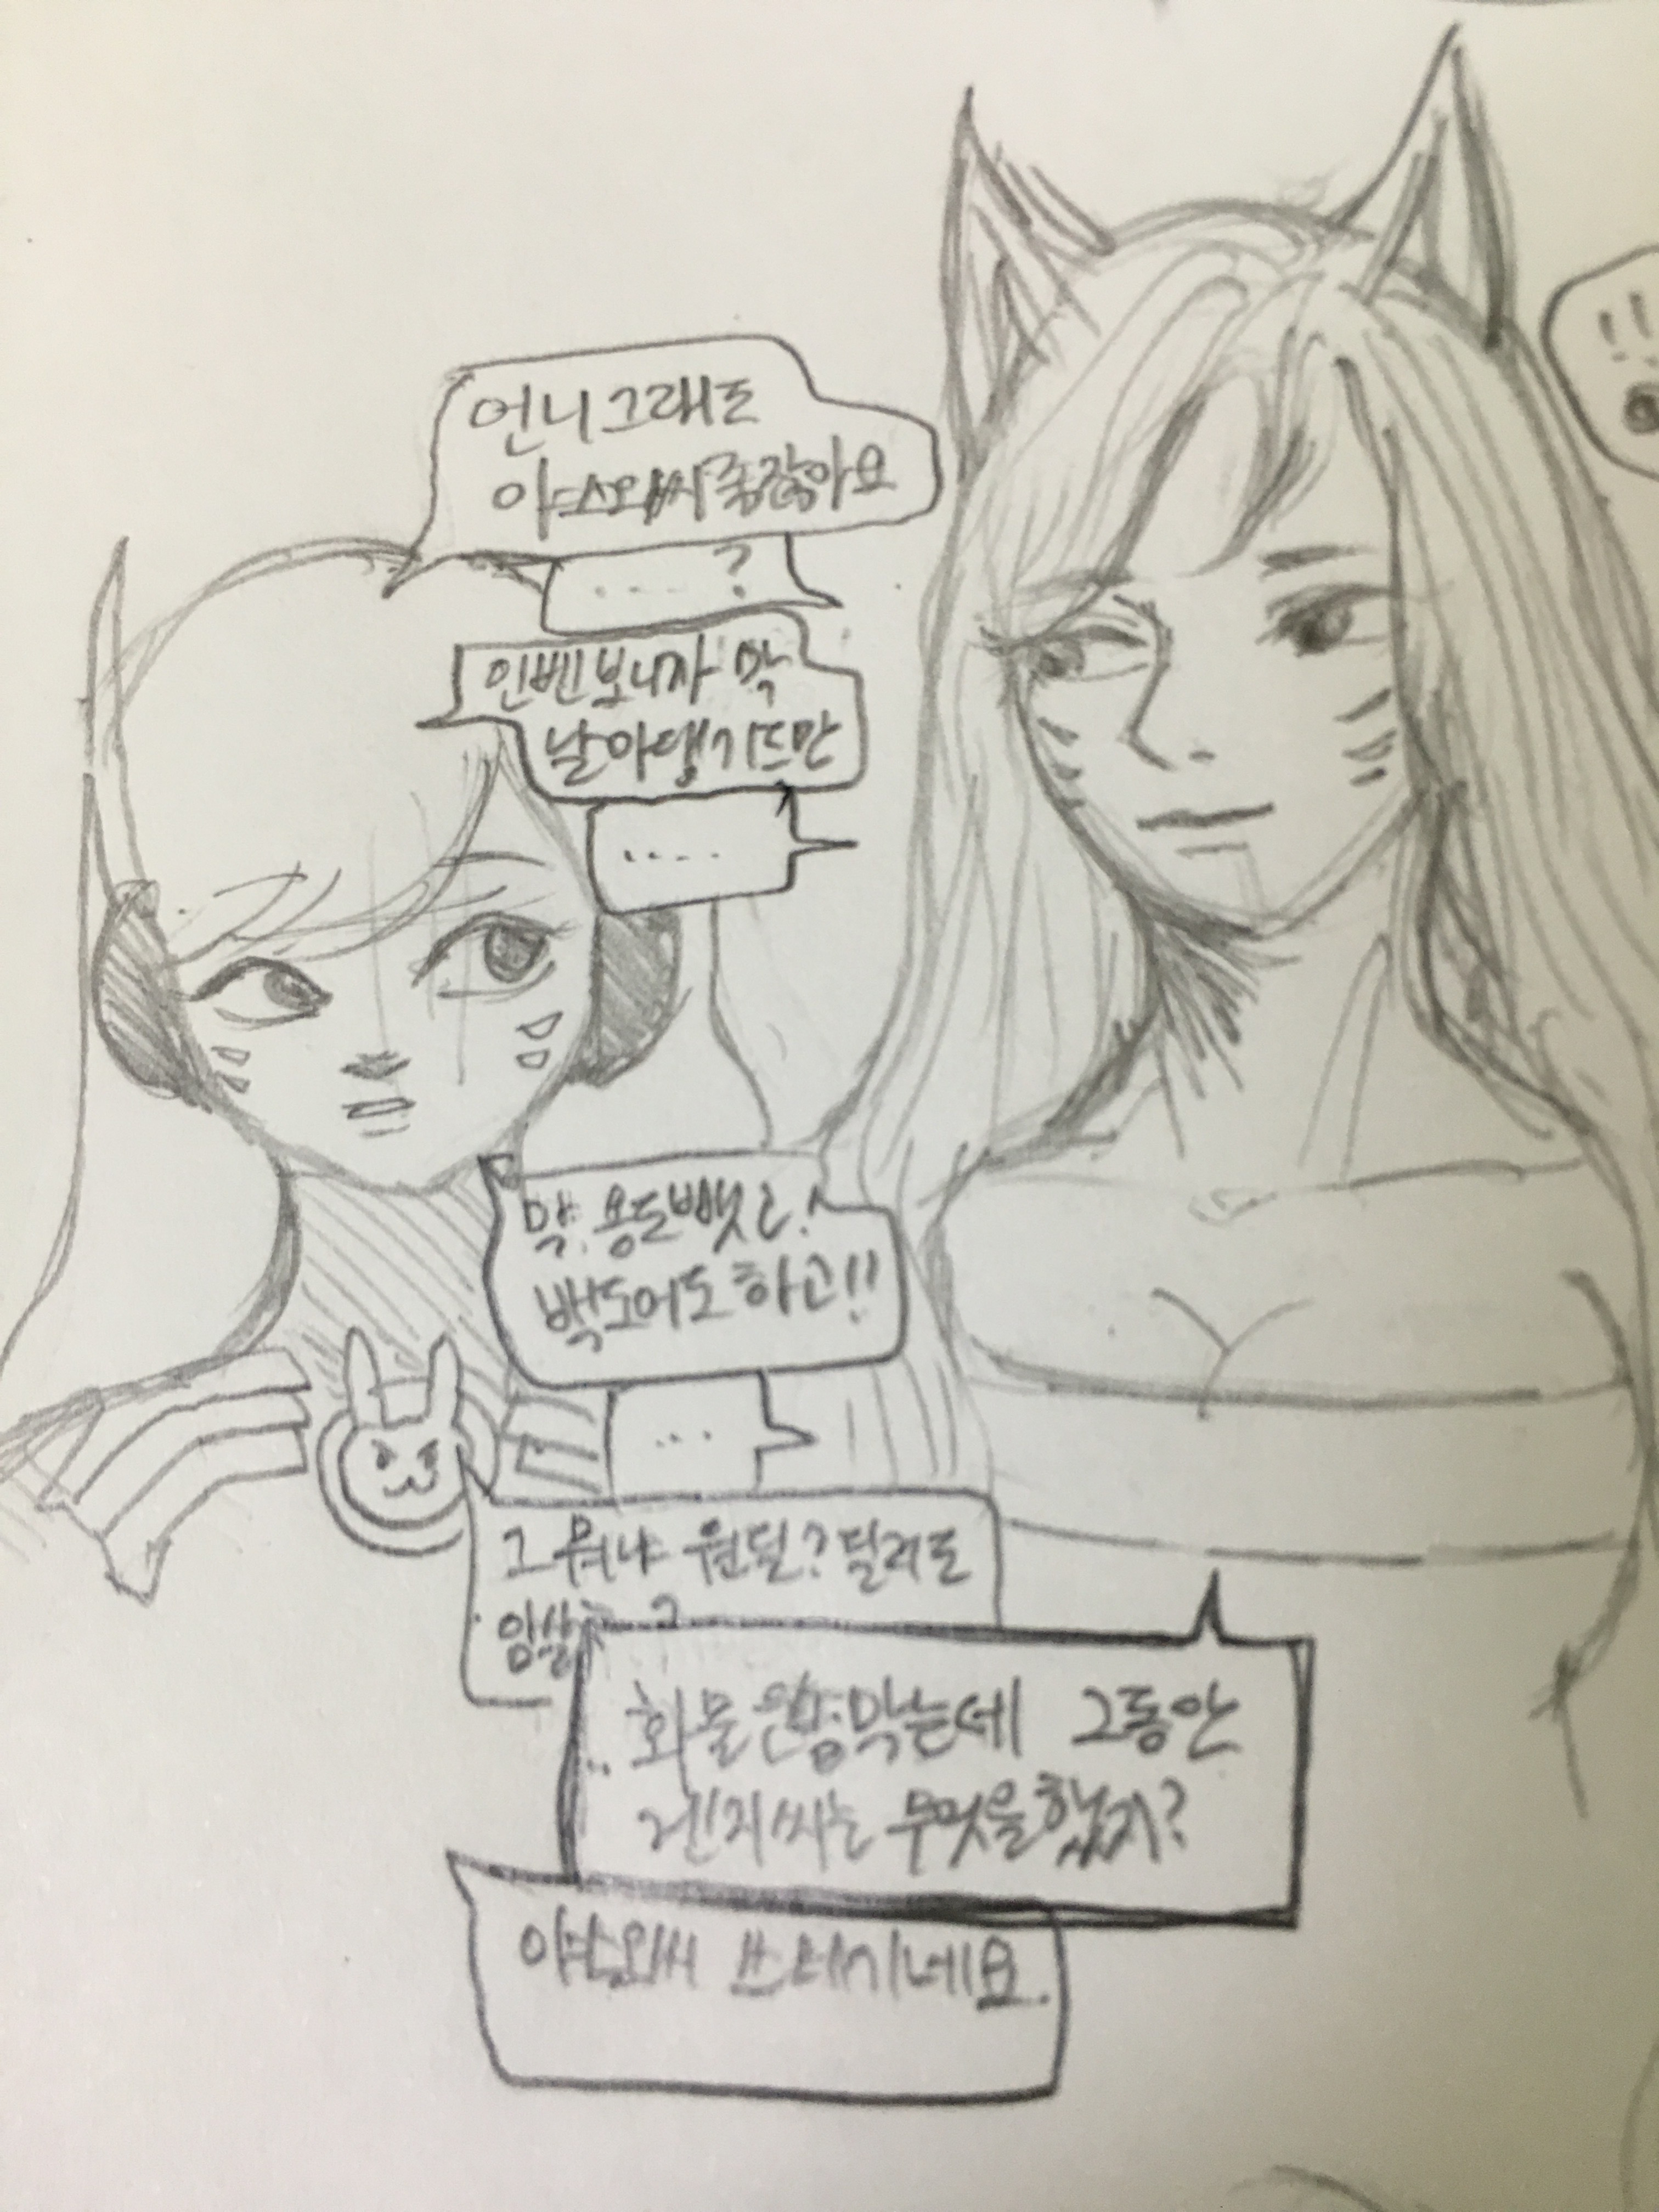 언니 그래도
야스오씨 좋잖아요
....?
인벤 보니까 막
날아댕기드만
....
막. 용도 뺏고!
백도어도 하고!!
...
그 뭐냐 원딜? 딜러도
암살
.. 화물 왕창 막는데 그동안
겐지씨는 무엇을 했지?
야스오씨 쓰레기네요.
!!